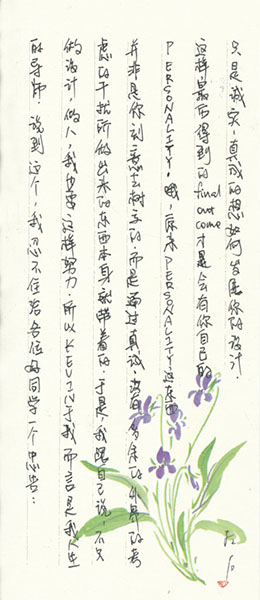 只是诚实,真诚的想如何发展你的设计.
这样,最后得到的final out come才是会有你自己的
PERSONALITY.哦,原来PERSONALITY这东西
并非是你刻意去树立的.而是通过真诚.没有多余的外界的考
虑的干扰所做出来的东西本身就带着的.于是,我跟自己说,不只
做设计,做人,我也要这样努力.所以KEVIN于我而言是我人生
的导师.说到这个,我忍不住给各位好同学一个忠告: